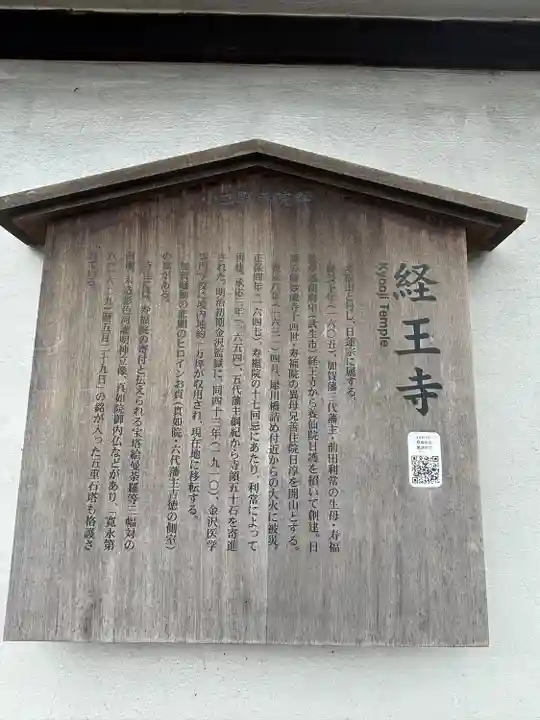 経王寺
Kyooji Temple
大乗山と号し、日蓮宗に属する。
慶長十年(一六〇五)、加賀藩三代藩主・前田利常の生母・寿福
院が越前府中(武生市)経王寺から養仙院日護を招いて創建。日
十四世・寿福院の異母兄善住院日淳を開山とする。
寛永八年(一六三一)四月、犀川橋詰め付近からの大火に被災。
正保四年(一六四七)、寿福院の十七回忌にあたり、利常によって
再建。承応三年(一六五四)、五代藩主綱紀から寺領五十石を寄進
された。明治初期金沢監獄に、同四十三年(一九一〇)、金沢医学
専門学校に境内地約一万坪が収用され、現在地に移転する。
加賀騒動の悲劇のヒロインお貞(真如院・六代藩主吉徳の側室)
の墓がある。
寺宝には、寿福院の寄付と伝えられる宝塔絵曼荼羅等三幅対の
画軸、木造彩色鬼子母神立像、真如院御内仏などがあり、「寛永第
五暦五月二十九日」の銘が入った五重石塔も格護さ
れている。